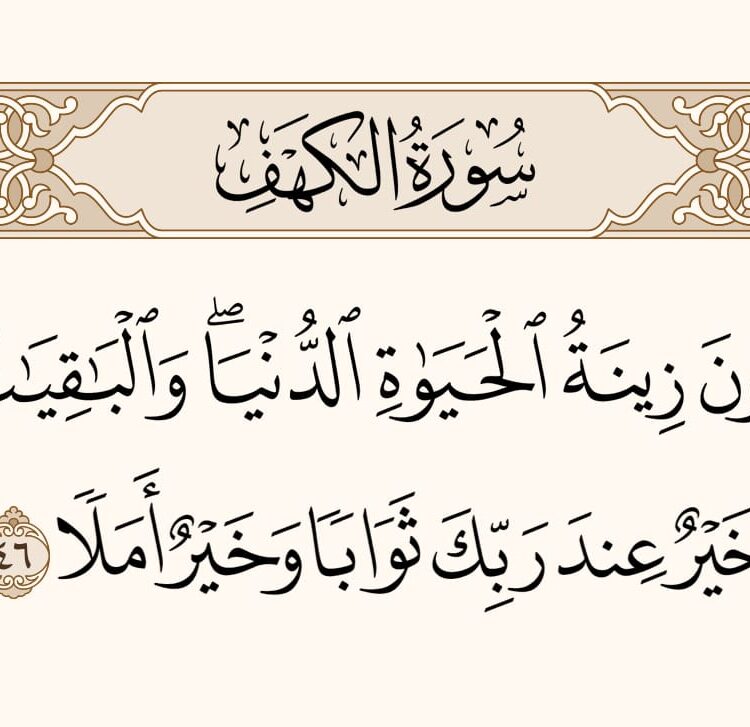 سُورَةُ الْكَهْفِ
زِينَةُ ٱلْحَيَوٰةِ ٱلدُّنْيَاۖ وَٱلْبَٰقِيَٰتُ
خَيْرٌ عِندَ رَبِّكَ ثَوَابًا وَخَيْرٌ أَمَلًا ٤٦